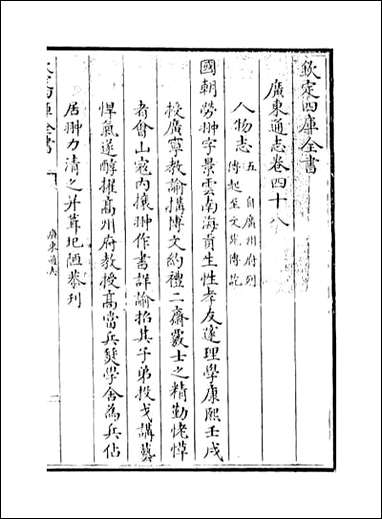 欽定四庫全書
廣東通志卷四十八
人物志五自廣州府列
傳起至文苑傳訖
國朝勞翀字景雲南海貢生性孝友邃理學康熙壬戌
授廣寧教諭搆博文約禮二齋嚴士之精勤恅愺
者會山寇內攘翀作書詳諭招其子弟投戈講藝
悍氣遂醇擢高州府教授高當兵燹學舍為兵佔
居翀力清之并葺圮陋恭列
廣東通志